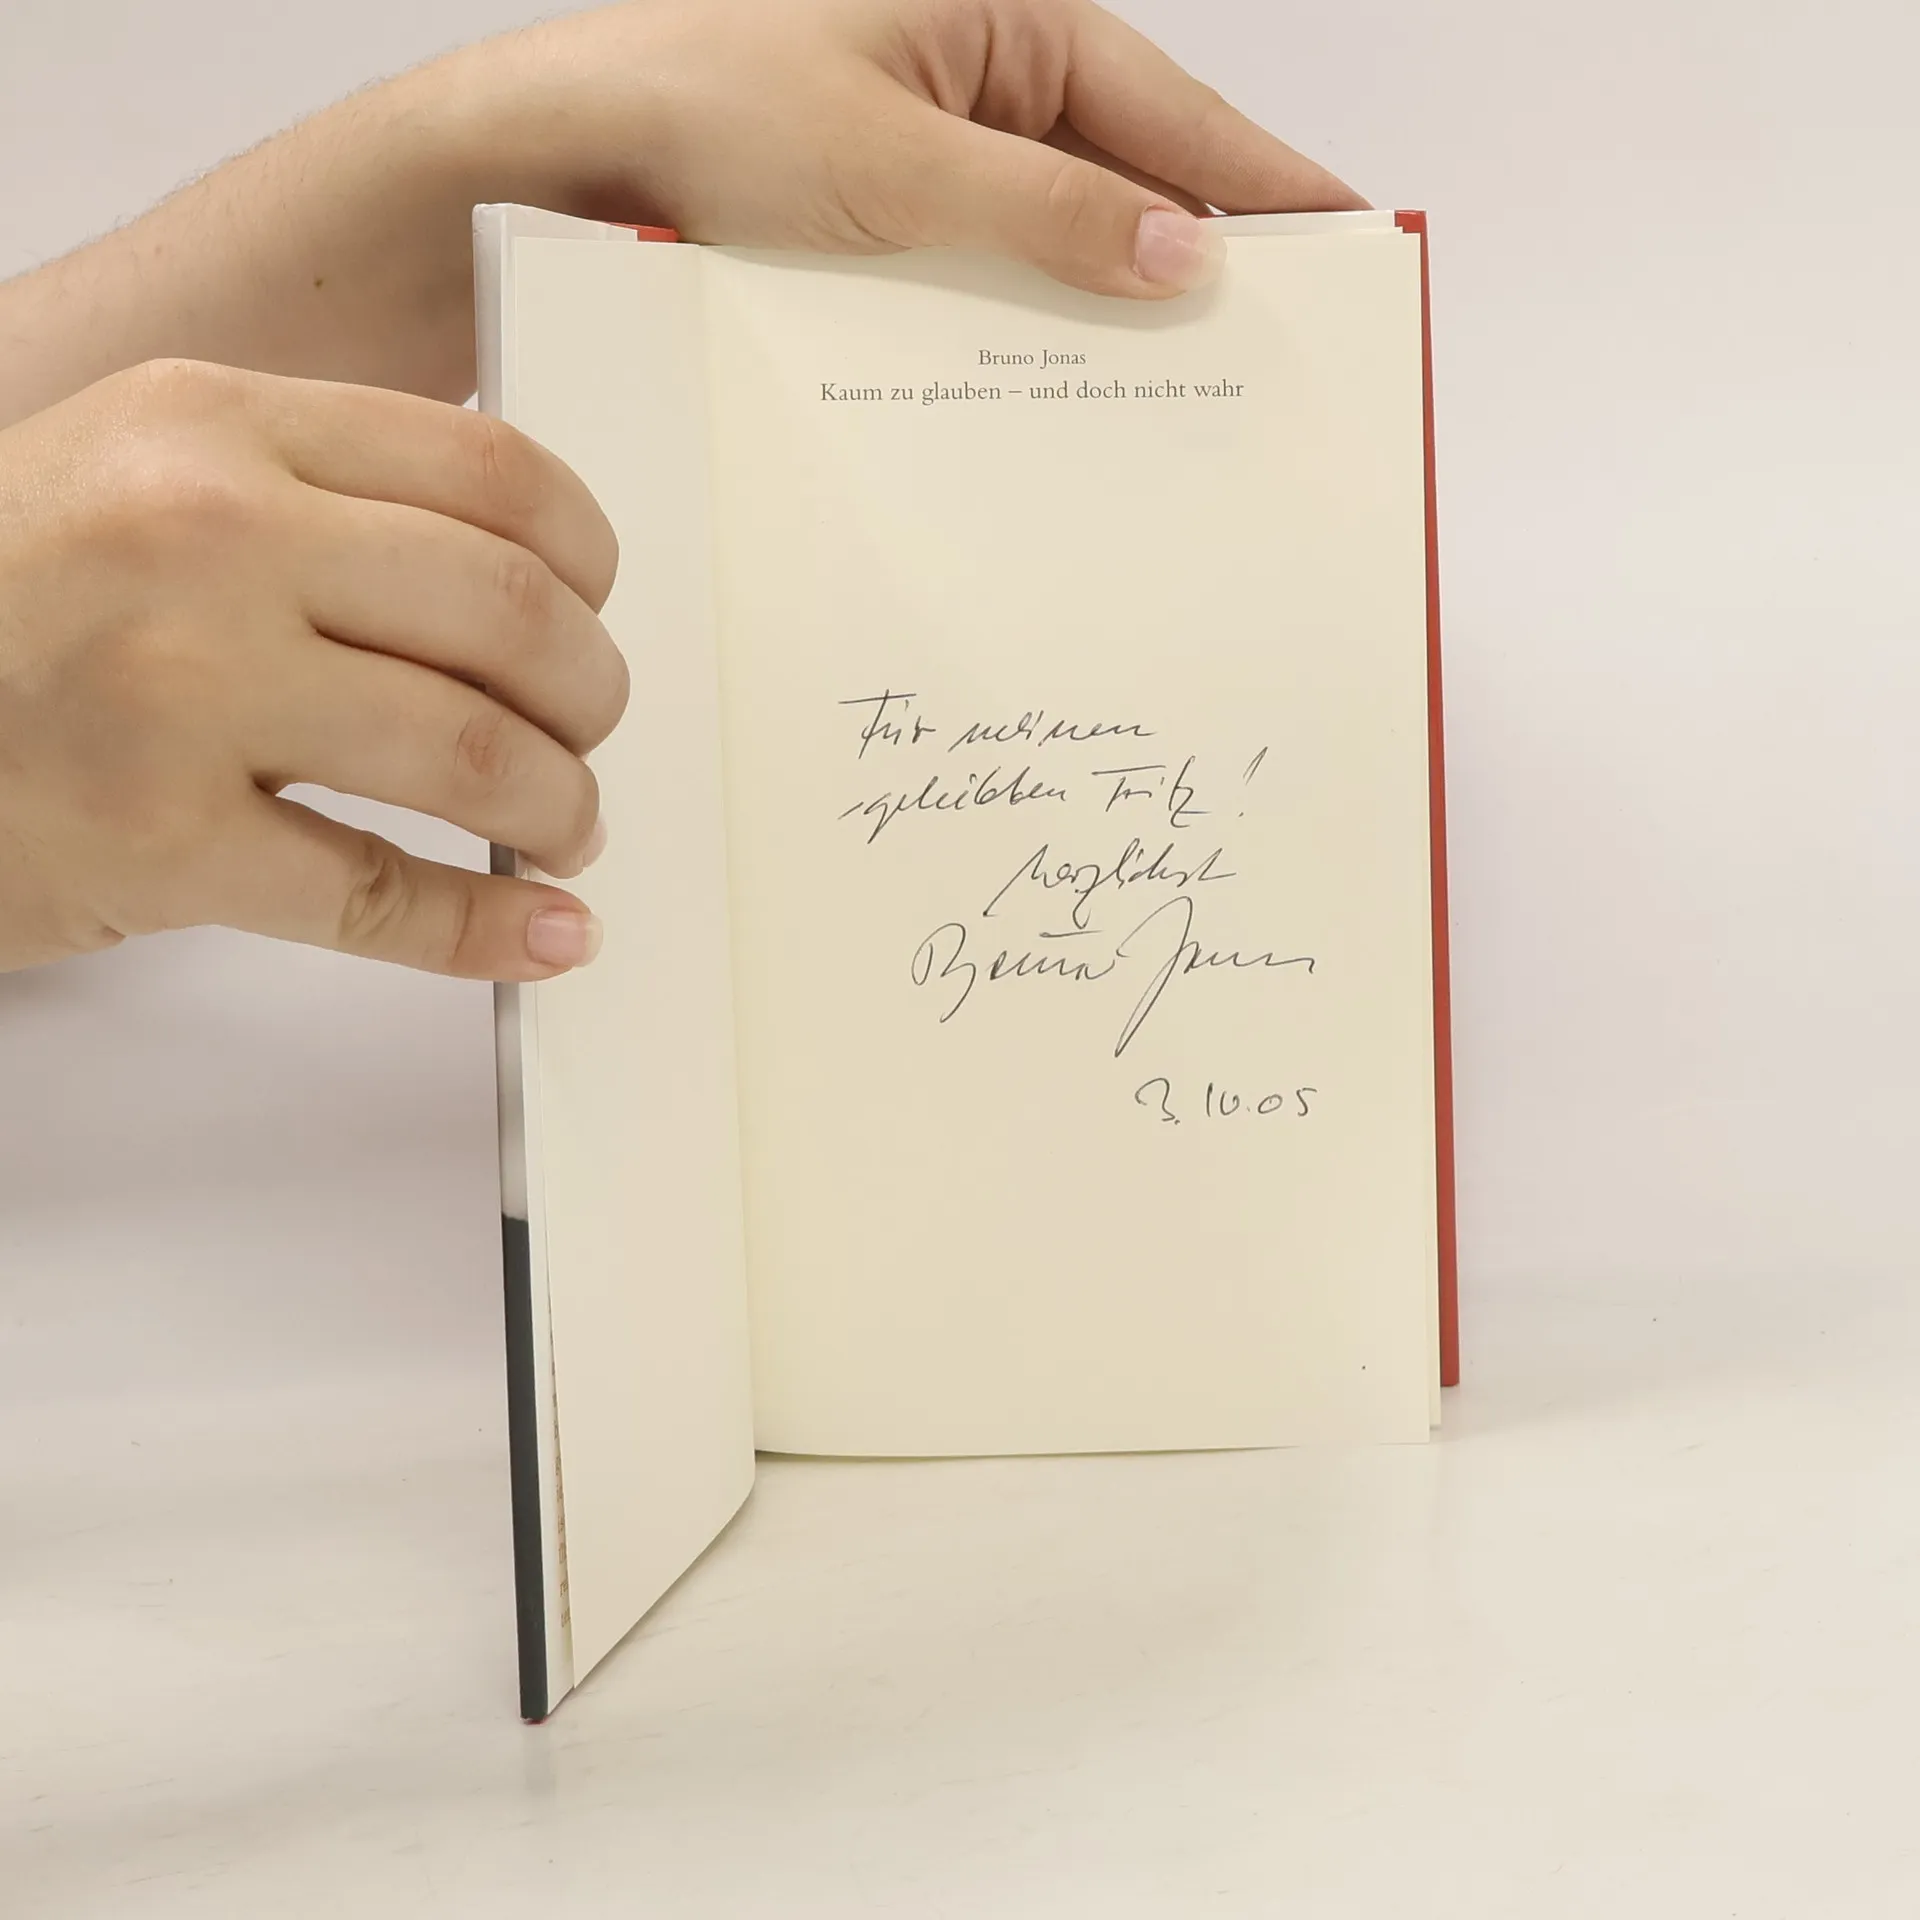 Bruno Jonas
Kaum zu glauben – und doch nicht wahr
Für meinen
geliebten Fritz!
herzlichst
Bruno Jonas
3.10.05